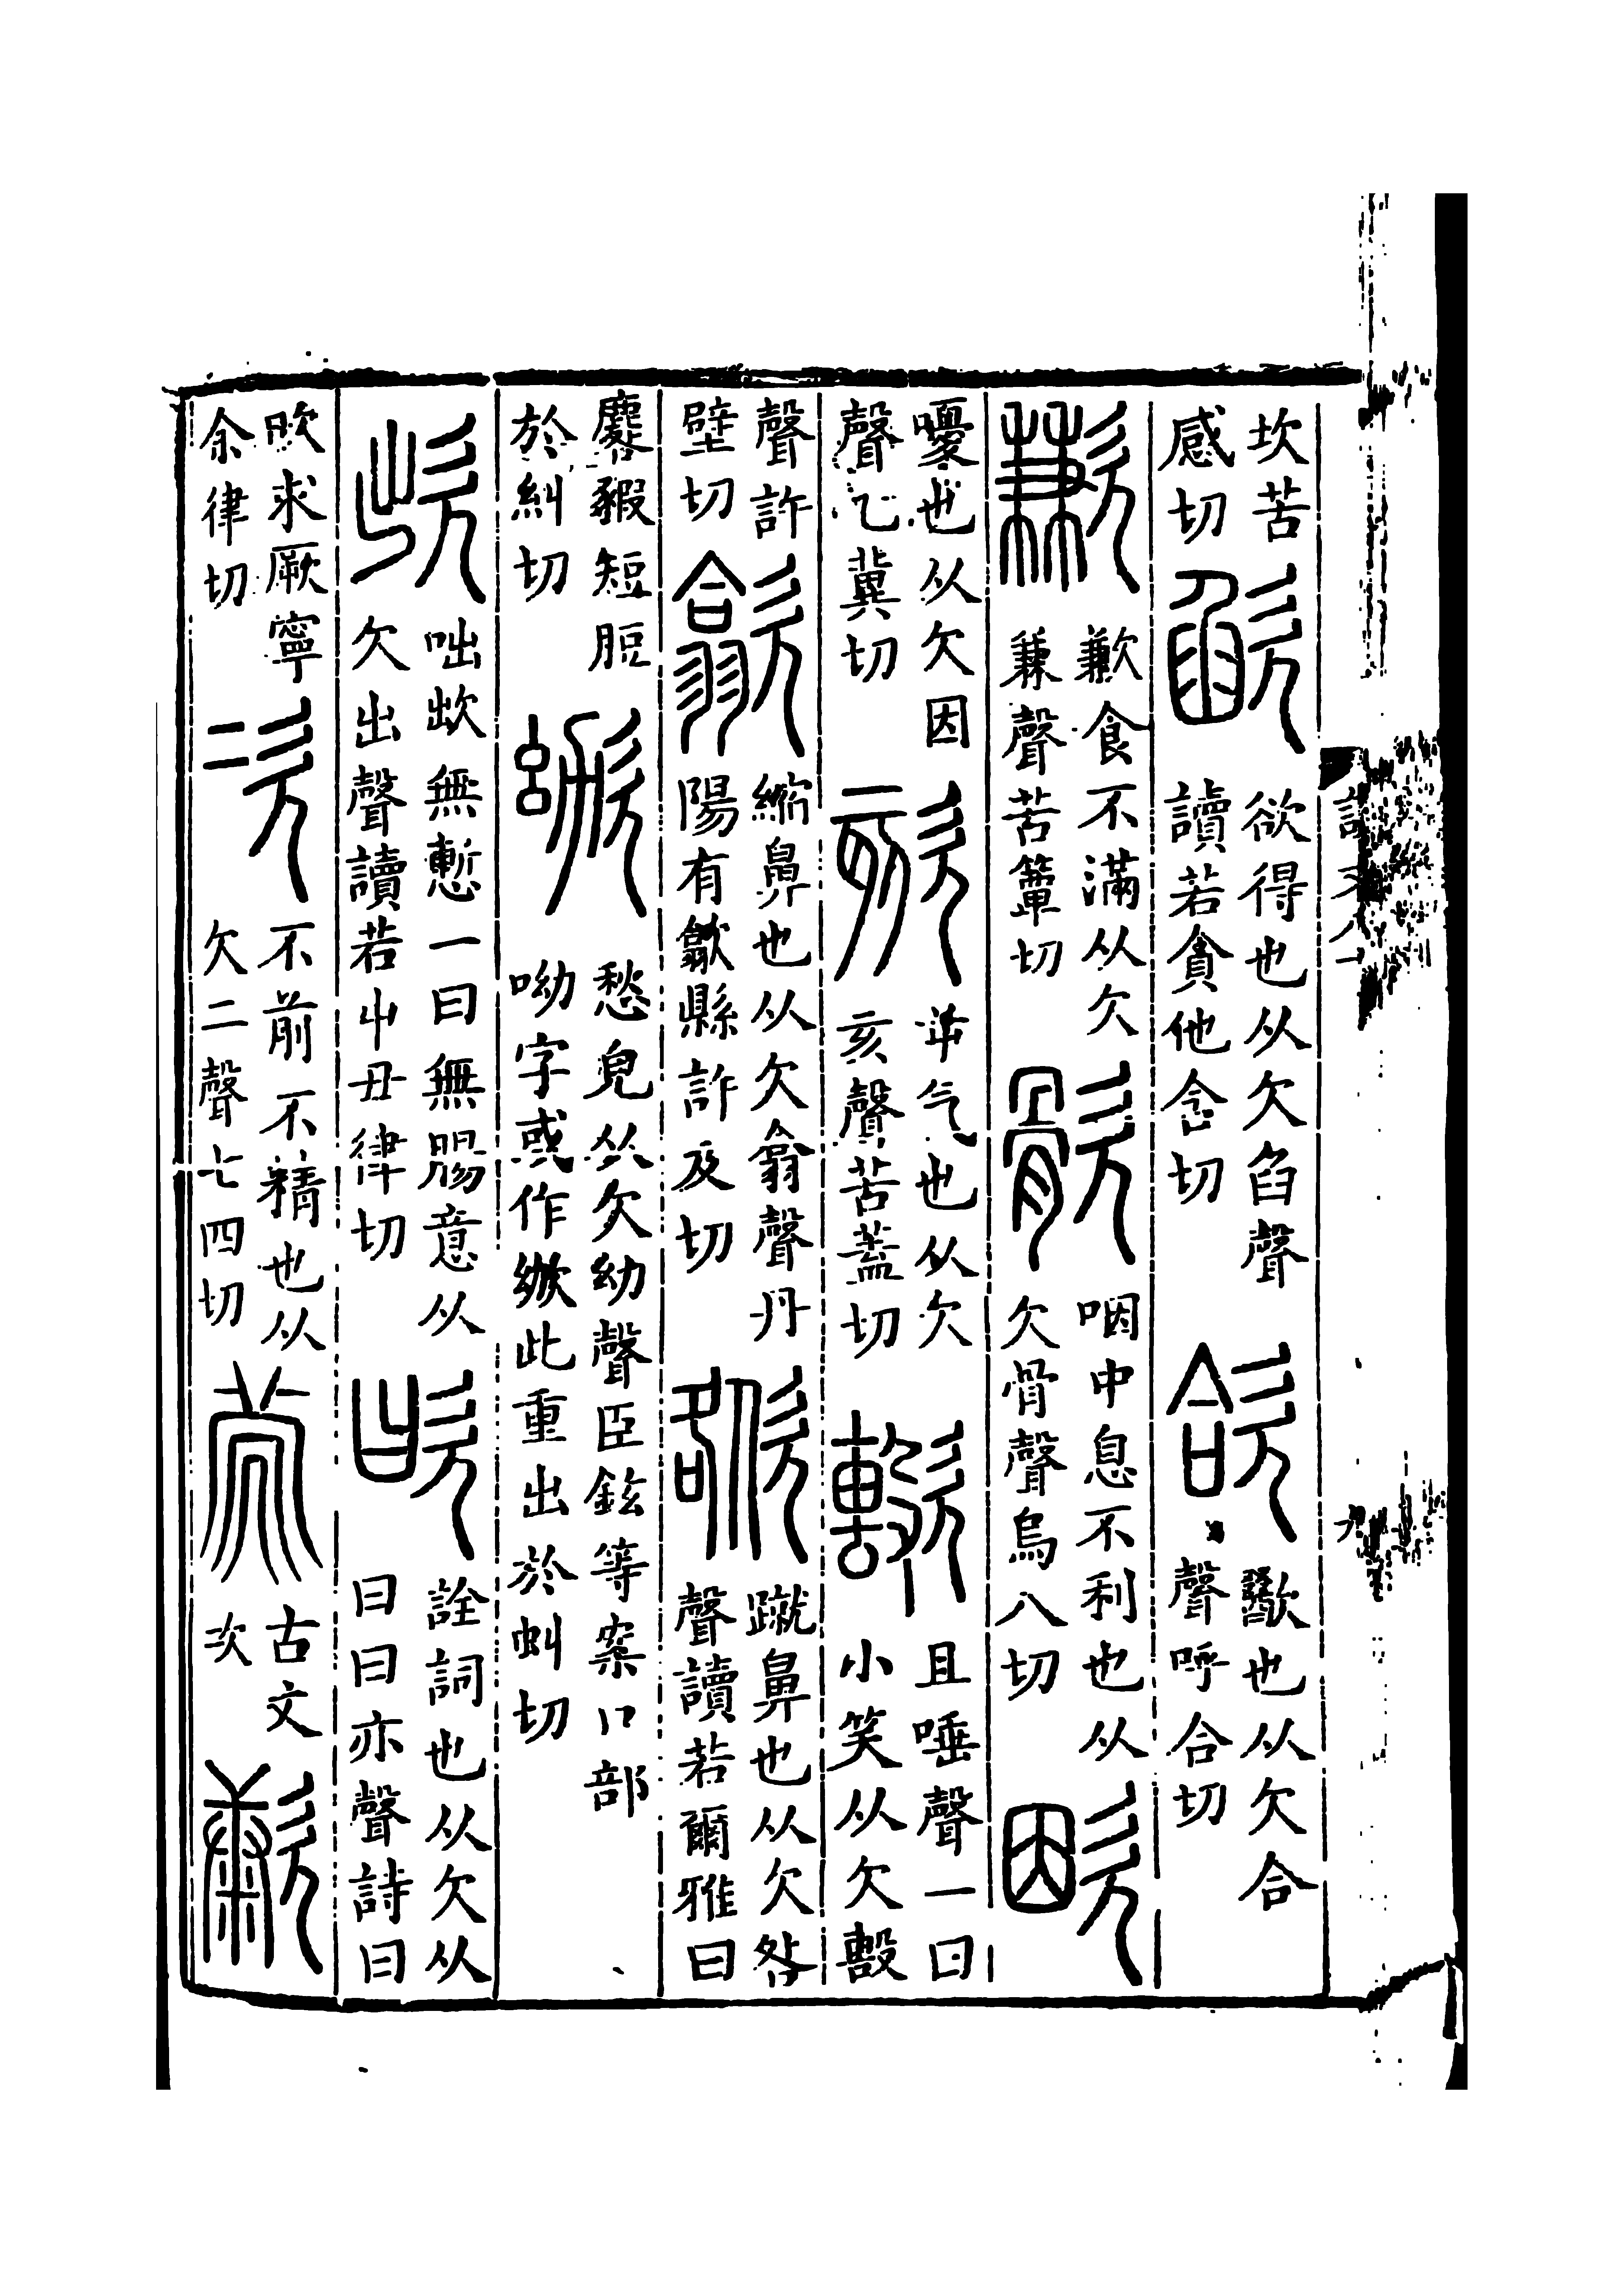 坎苦
感切
欿
欲得也从欠臽聲
讀若貪他含切
欱
歠也从欠合
聲呼合切
歉
歉食不滿从欠
兼聲苦簟切
咽中息不利也从
欠骨聲烏八切
欭
嚘也从欠因
聲乙冀切
欬
屰气也从欠
亥聲苦蓋切
且唾聲一曰
小笑从欠𣪠
聲許
壁切
歙
縮鼻也从欠翕聲丹
陽有歙縣許及切
蹴鼻也从欠咎
聲讀若爾雅曰
麔豭短脰
於糾切
愁皃从欠幼聲臣鉉等案口部
呦字或作此重出於虯切
欪
咄欪無慙一曰無腸意从
欠出聲讀若屮丑律切
欥
詮詞也从欠从
曰曰亦聲詩曰
欥求厥寧
余律切
次
不前不精也从
欠二聲七四切
古文
次
㱂